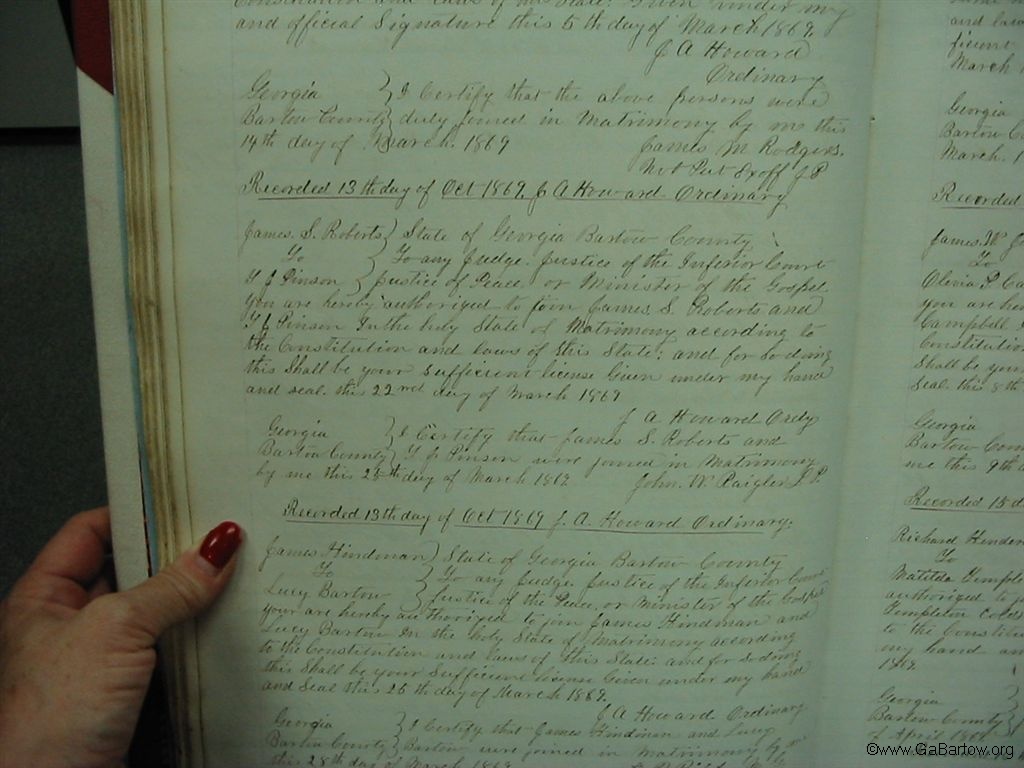 Constitution and laws of this State: Given under my
and official Signature this 5th day of March 1869.
J A Howard
Ordinary
Georgia } I Certify that the above persons were
Bartow County } duly joined in Matrimony by me this
14th day of March. 1869
James M Rodgers.
Not Pub Exoff J P
Recorded 13th day of Oct 1869. J A Howard Ordinary
James. S. Roberts } State of Georgia Bartow County
To } To any Judge. Justice of the Inferior Court
T J Pinson } Justice of Peace, or Minister of the Gospel
You are hereby authorized to join James S. Roberts and
T J Pinson In the holy State of Matrimony according to
the Constitution and laws of this State; and for so doing
this Shall be your sufficient license Given under my hand
and seal. this 22nd day of March 1869
J A Howard Ordy
Georgia } I Certify that James S. Roberts and
Bartow County } T J Pinson were joined in Matrimony
by me this 25th day of March 1869.
John. W. J.P.
Recorded 13th day of Oct 1869 J. A. Howard Ordinary.
James Hindman } State of Georgia Bartow County
To } To any Judge Justice of the Inferior Court
Lucy Bartow } Justice of the Peace, or Minister of the Gospel
your are hereby authorized to join James Hindman and
Lucy Bartow In the holy State of Matrimony according
to the Constitution and laws of this State: and for so doing
this Shall be your Sufficient license Given under my hand
and Seal this 25th day of March 1869.
J A Howard Ordinary
Georgia } I Certify that James Hindman and Lucy
Bartow County } Bartow were joined in Matrimony by me
this 28th day of March 1869
and law
March
Georgia
Bartow C
March. 1
Recorded
James. W.
To
Olivia P. Ca
you are her
Campbell
Constitution
Shall be your
Seal. this 8th
Georgia
Bartow Coun
me this 9th d
Recorded 15 d
Richard Hender
To
Matilda Temple
authorized to j
Templeton
to the Constitu
my hand an
1869.
Georgia
Bartow County
of April 1869
©www.GaBartow.org